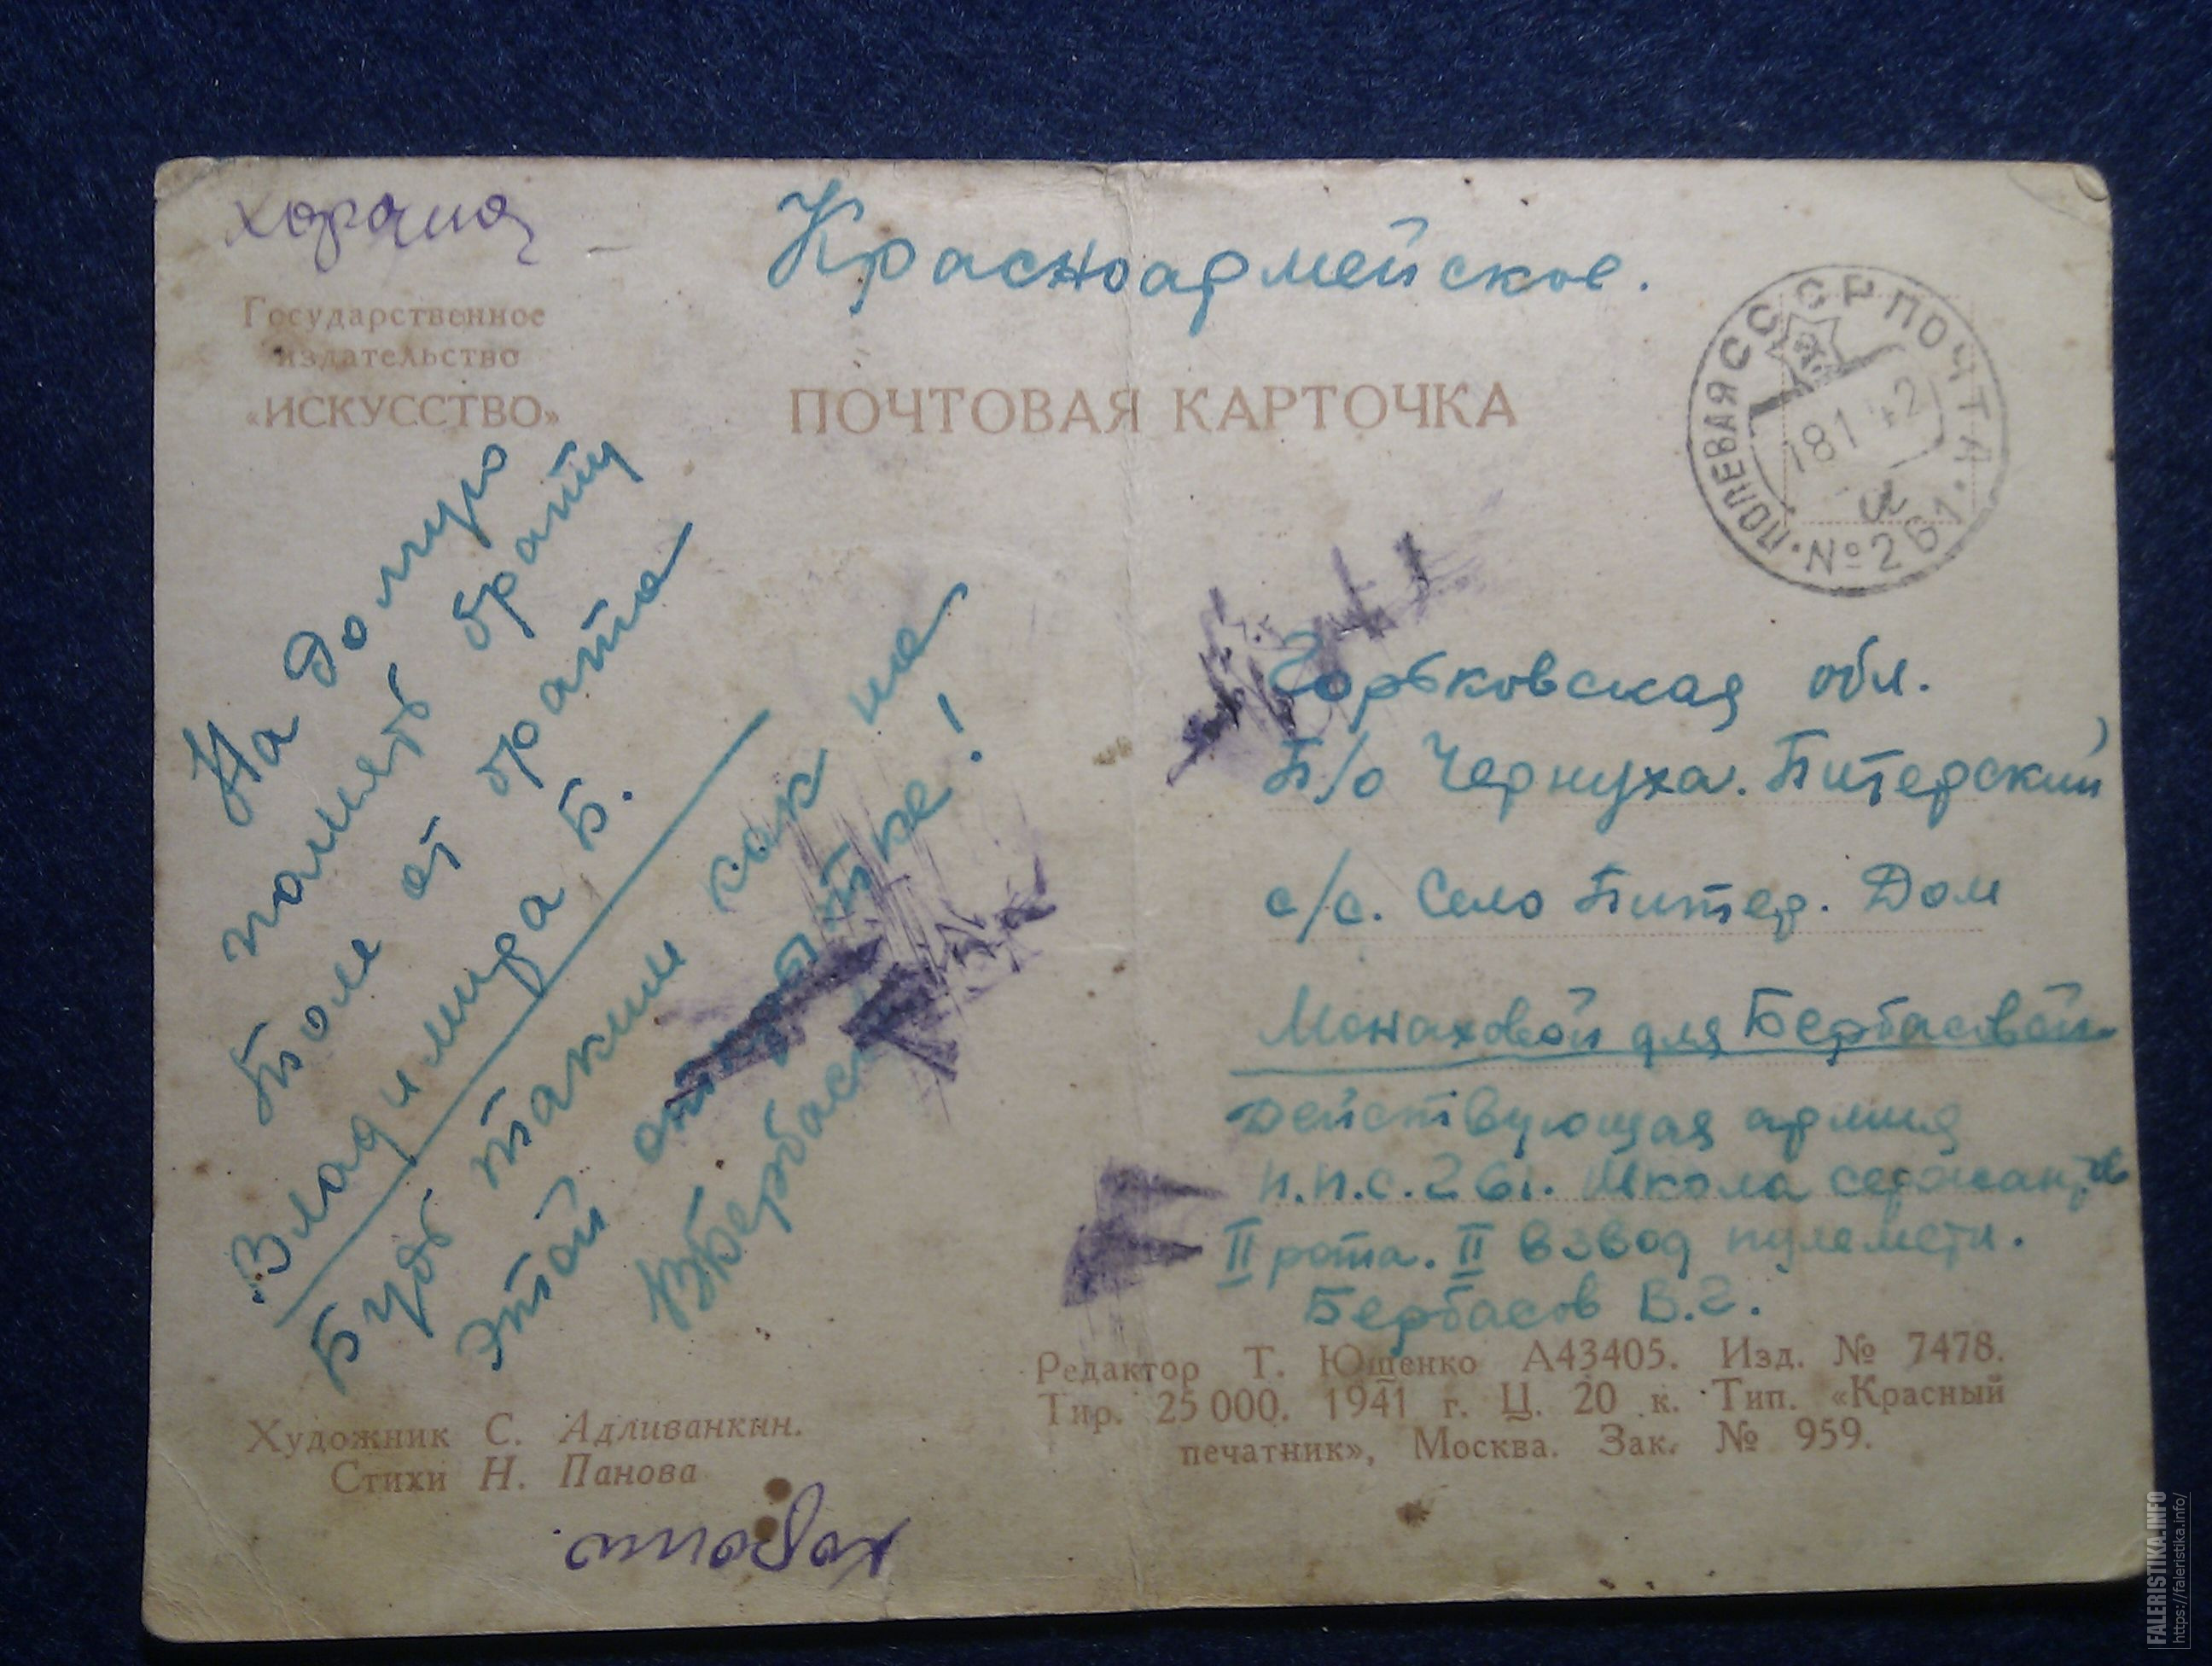 хорошо
Красноармейское.
Государственное
издательство
«ИСКУССТВО»
ПОЧТОВАЯ КАРТОЧКА
ПОЛЕВАЯ СССР ПОЧТА
18 1 42
а
№ 261
На долгую
память брату
Толе от брата
Владимира Б.
Будь таким как на
этой открытке!
ВБербасов
Горьковская обл.
П/о Чернуха. Питерский
с/с. Село Питер. Дом
Монаховой для Бербасовой
Действующая армия
п.п.с. 261. Школа сержантов
II рота. II взвод пулеметн.
Бербасов В.Г.
Редактор Т. Ющенко А43405. Изд. № 7478.
Тир. 25 000. 1941 г. Ц. 20 к. Тип. «Красный
печатник», Москва. Зак. № 959.
Художник С. Адливанкин.
Стихи Н. Панова
FALERISTIKA.INFO
https://faleristika.info/